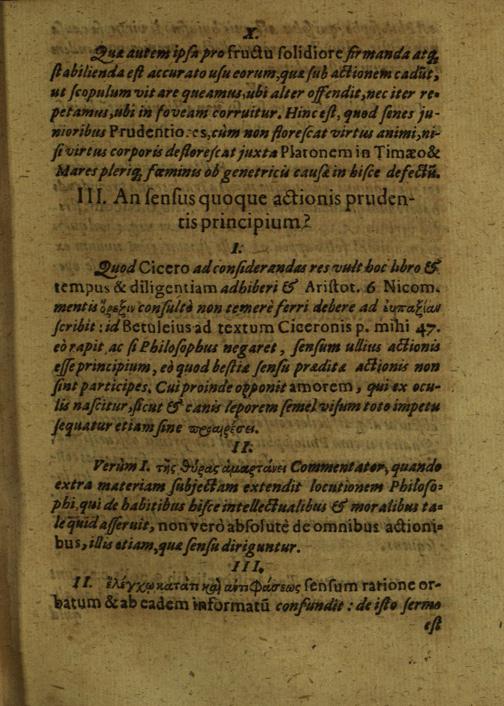 X.
Quæ autem ipsa pro fructu solidiore firmanda atq́;
stabilienda est accurato usu eorum, quæ sub actionem cadūt,
ut scopulum vitare queamus, ubi alter offendit, nec iter re-
petamus, ubi in foveam corruitur. Hinc est, quod senes ju-
nioribus Prudentiores, cùm non florescat virtus animi, ni-
si virtus corporis deflorescat juxta Platonem in Timæo &
Mares pleriq́; fœminis ob genetricū causā in hisce defectū.
III. An sensus quoque actionis pruden-
tis principium?
I.
Quod Cicero ad considerandas res vult hoc libro &
tempus & diligentiam adhiberi & Aristot. 6 Nicom.
mentis ὄρεξιν consultò non temerè ferri debere ad εὐπραξίαν
scribit: id Betuleius ad textum Ciceronis p. mihi 47.
eò rapit, ac si Philosophus negaret, sensum ullius actionis
esse principium, eò quod bestiæ sensu præditæ actionis non
sint participes. Cui proinde opponit amorem, qui ex ocu-
lis nascitur, sicut & canis leporem semel visum toto impetu
sequatur etiam sine προαιρέσει.
II.
Verùm I. τῆς θύρας ἁμαρτάνει Commentator, quando
extra materiam subjectam extendit locutionem Philoso-
phi, qui de habitibus hisce intellectualibus & moralibus ta-
le quid asseruit, non verò absolutè de omnibus actioni-
bus, illis etiam, quæ sensu diriguntur.
III.
II. ἐλέγχῳ κατάτι καὶ ἀντιφάσεως sensum ratione or-
batum & ab eadem informatū confundit: de isto sermo
est